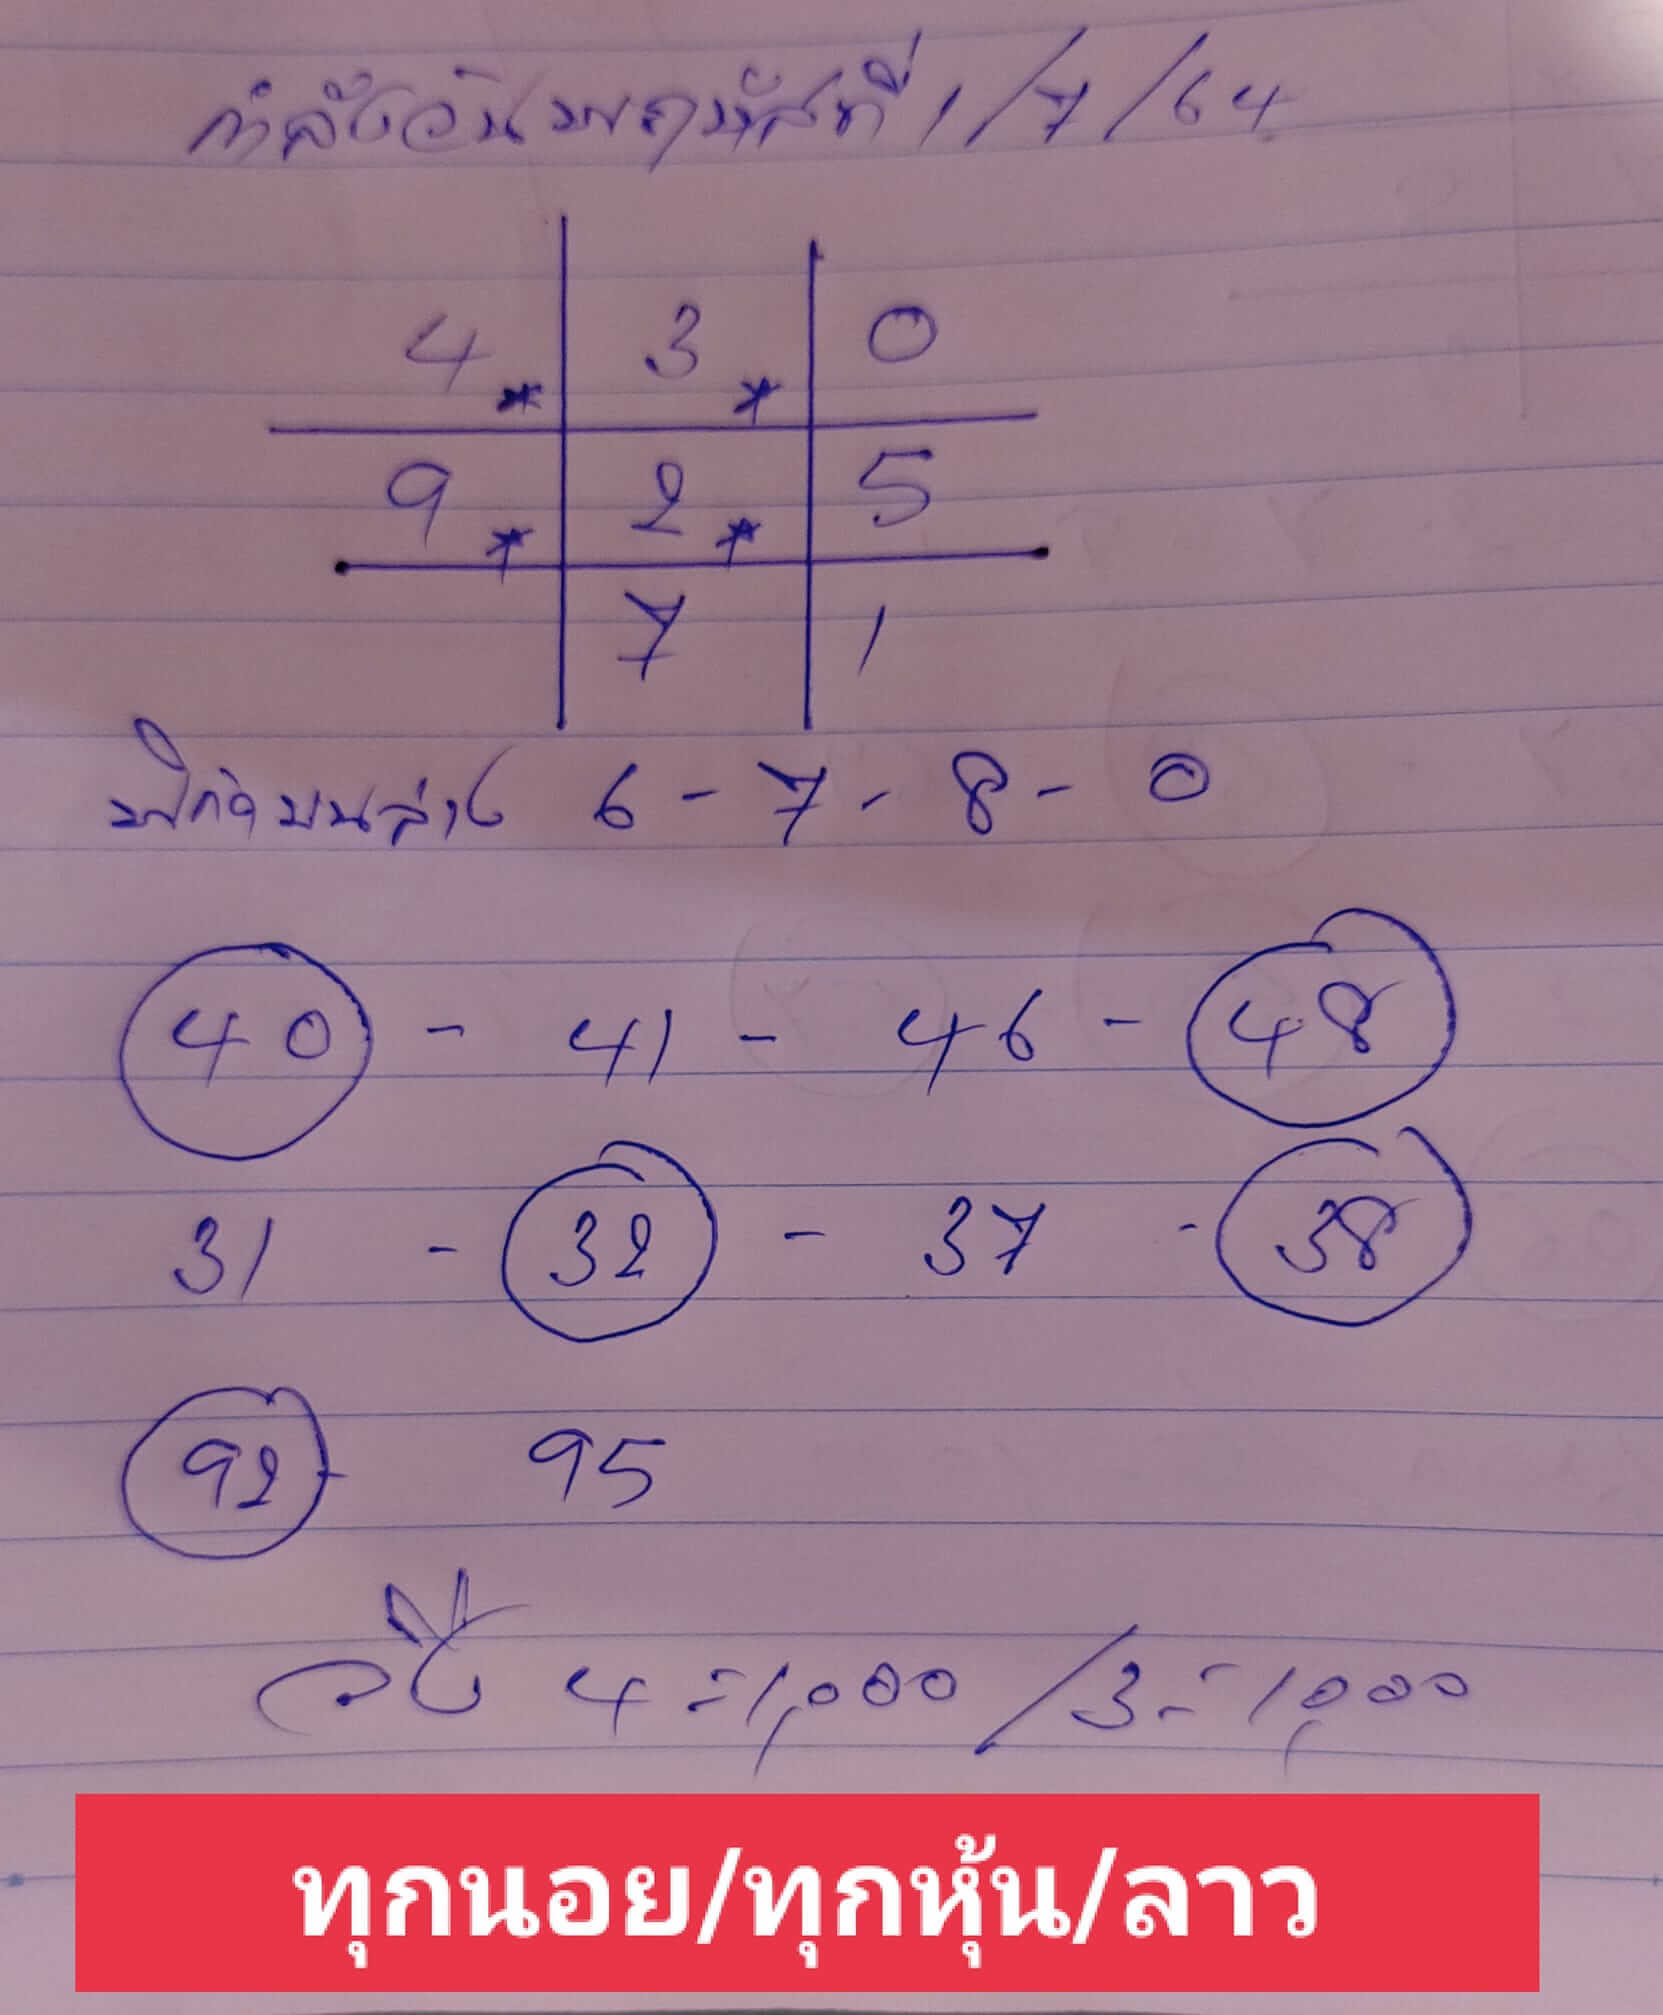 กำลังวันพฤหัสที่ 1/7/64
4* 3* 0
9* 2* 5
7 1
พิกัดบนล่าง 6 - 7 - 8 - 0
40 - 41 - 46 - 48
31 - 32 - 37 - 38
92 - 95
4 = 1,000 / 3 = 1,000
ทุกนอย/ทุกหุ้น/ลาว